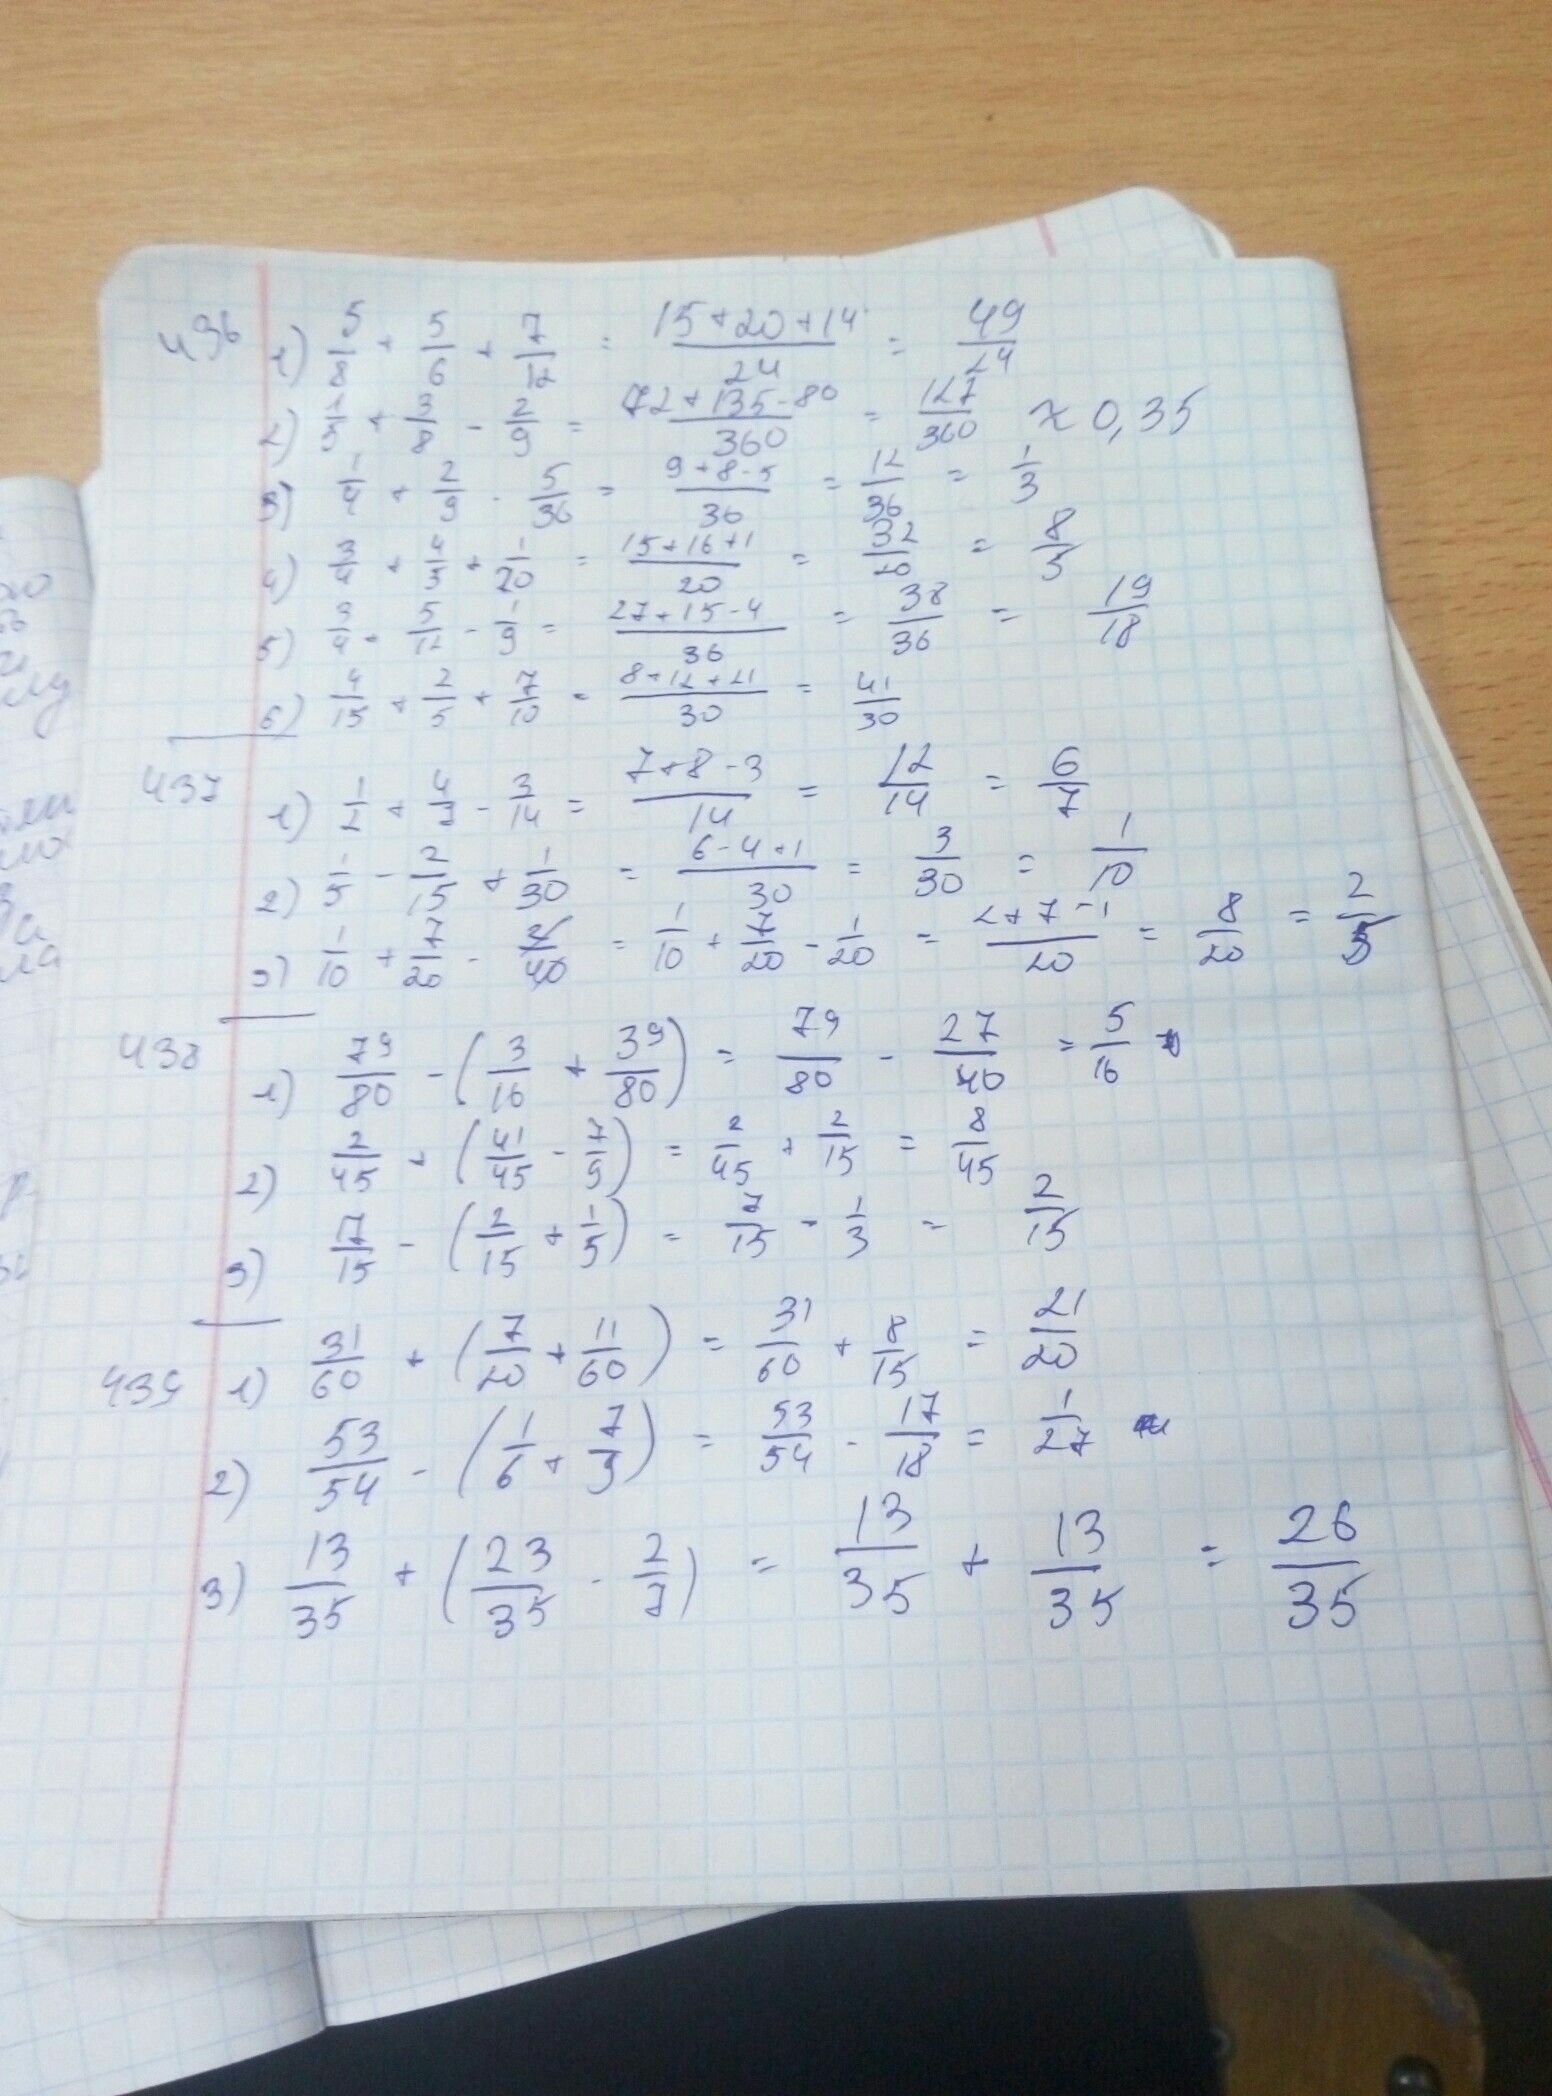 436 1) 5/8 + 5/6 + 7/12 = (15+20+14)/24 = 49/24
2) 1/5 + 3/8 - 2/9 = (72+135-80)/360 = 127/360 ≈ 0,35
3) 1/4 + 2/9 - 5/36 = (9+8-5)/36 = 12/36 = 1/3
4) 3/4 + 4/5 + 1/20 = (15+16+1)/20 = 32/20 = 8/5
5) 3/4 + 5/12 - 1/9 = (27+15-4)/36 = 38/36 = 19/18
6) 4/15 + 2/5 + 7/10 = (8+12+21)/30 = 41/30
437 1) 1/2 + 4/7 - 3/14 = (7+8-3)/14 = 12/14 = 6/7
2) 1/5 - 2/15 + 1/30 = (6-4+1)/30 = 3/30 = 1/10
3) 1/10 + 7/20 - 2/40 = 1/10 + 7/20 - 1/20 = (2+7-1)/20 = 8/20 = 2/5
438 1) 79/80 - (3/16 + 39/80) = 79/80 - 27/40 = 5/16
2) 2/45 + (41/45 - 7/9) = 2/45 + 2/15 = 8/45
3) 7/15 - (2/15 + 1/5) = 7/15 - 1/3 = 2/15
439 1) 31/60 + (7/20 + 11/60) = 31/60 + 8/15 = 21/20
2) 53/54 - (1/6 + 7/9) = 53/54 - 17/18 = 1/27
3) 13/35 + (23/35 - 2/7) = 13/35 + 13/35 = 26/35